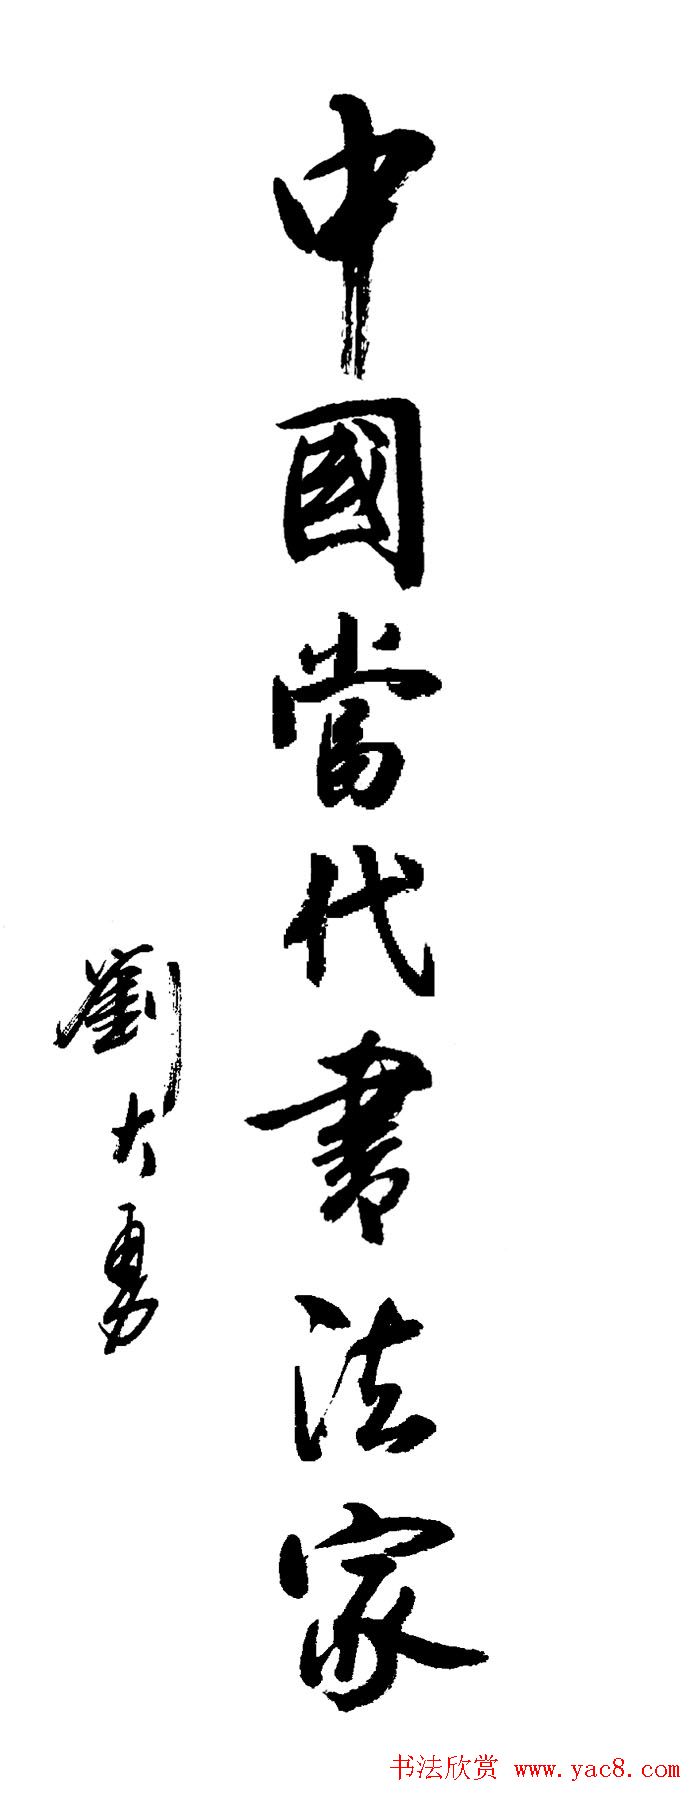 中國當代書法家
劉大勇
书法欣赏 www.yac8.com